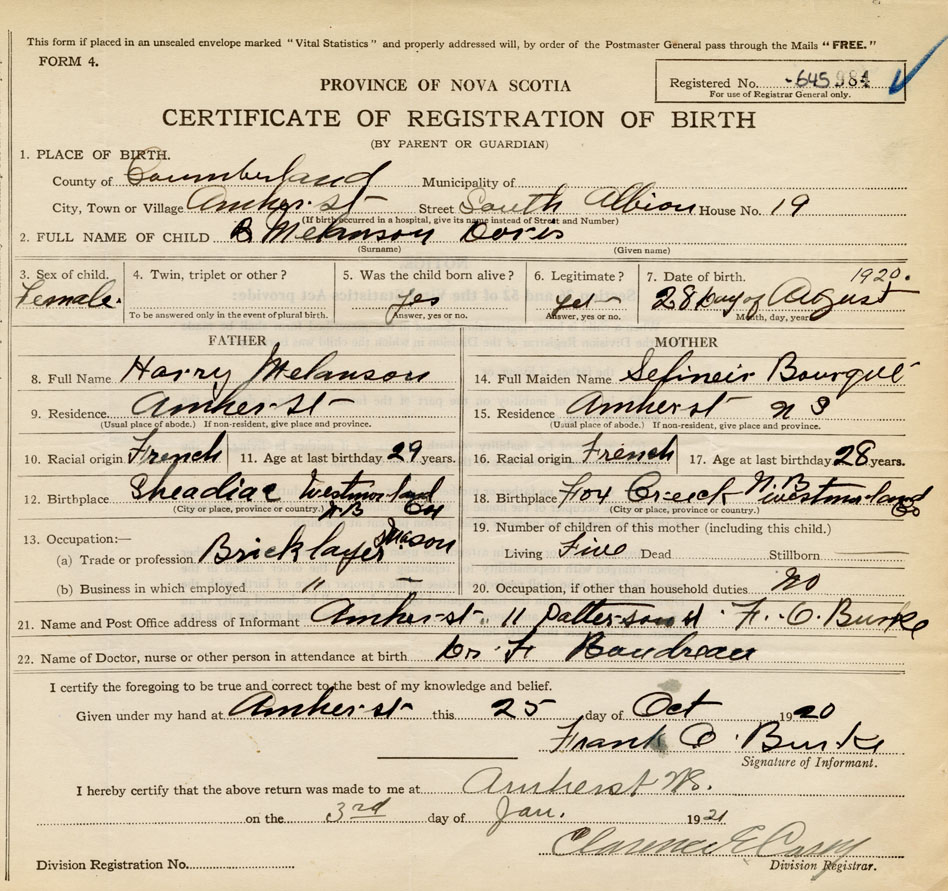 This form if placed in an unsealed envelope marked "Vital Statistics" and properly addressed will, by order of the Postmaster General pass through the Mails "FREE."
FORM 4.
Registered No. -645984
For use of Registrar General only.
PROVINCE OF NOVA SCOTIA
CERTIFICATE OF REGISTRATION OF BIRTH
(BY PARENT OR GUARDIAN)
1. PLACE OF BIRTH.
County of Coumberland Municipality of
City, Town or Village Amherst Street South Albion House No. 19
(If birth occurred in a hospital, give its name instead of Street and Number)
2. FULL NAME OF CHILD Melanson Doris
(Surname) (Given name)
3. Sex of child. 4. Twin, triplet or other? 5. Was the child born alive? 6. Legitimate? 7. Date of birth. 1920.
Female. yes yes 28 Day of August
To be answered only in the event of plural birth. Answer, yes or no. Answer, yes or no. Month, day, year
FATHER MOTHER
8. Full Name Harry Melanson 14. Full Maiden Name Sefineir Bourque
9. Residence Amherst 15. Residence Amherst N S
(Usual place of abode.) If non-resident, give place and province. (Usual place of abode.) If non-resident, give place and province.
10. Racial origin French 11. Age at last birthday 29 years. 16. Racial origin French 17. Age at last birthday 28 years.
12. Birthplace Sheadiac Westmorland NB Co 18. Birthplace Fox Creeck N.B Westmorland Co
(City or place, province or country.) (City or place, province or country.)
13. Occupation:— 19. Number of children of this mother (including this child.)
(a) Trade or profession Bricklayer Mason Living Five Dead Stillborn
(b) Business in which employed " — 20. Occupation, if other than household duties. No
21. Name and Post Office address of Informant Amherst. 11 Patterson st. F. O. Burke
22. Name of Doctor, nurse or other person in attendance at birth Dr. F. Boudreau
I certify the foregoing to be true and correct to the best of my knowledge and belief.
Given under my hand at Amherst this 25 day of Oct 1920
Frank O. Burke
Signature of Informant.
I hereby certify that the above return was made to me at Amherst NS.
on the 3rd day of Jan. 1921
Clarence E Casey
Division Registration No. Division Registrar.